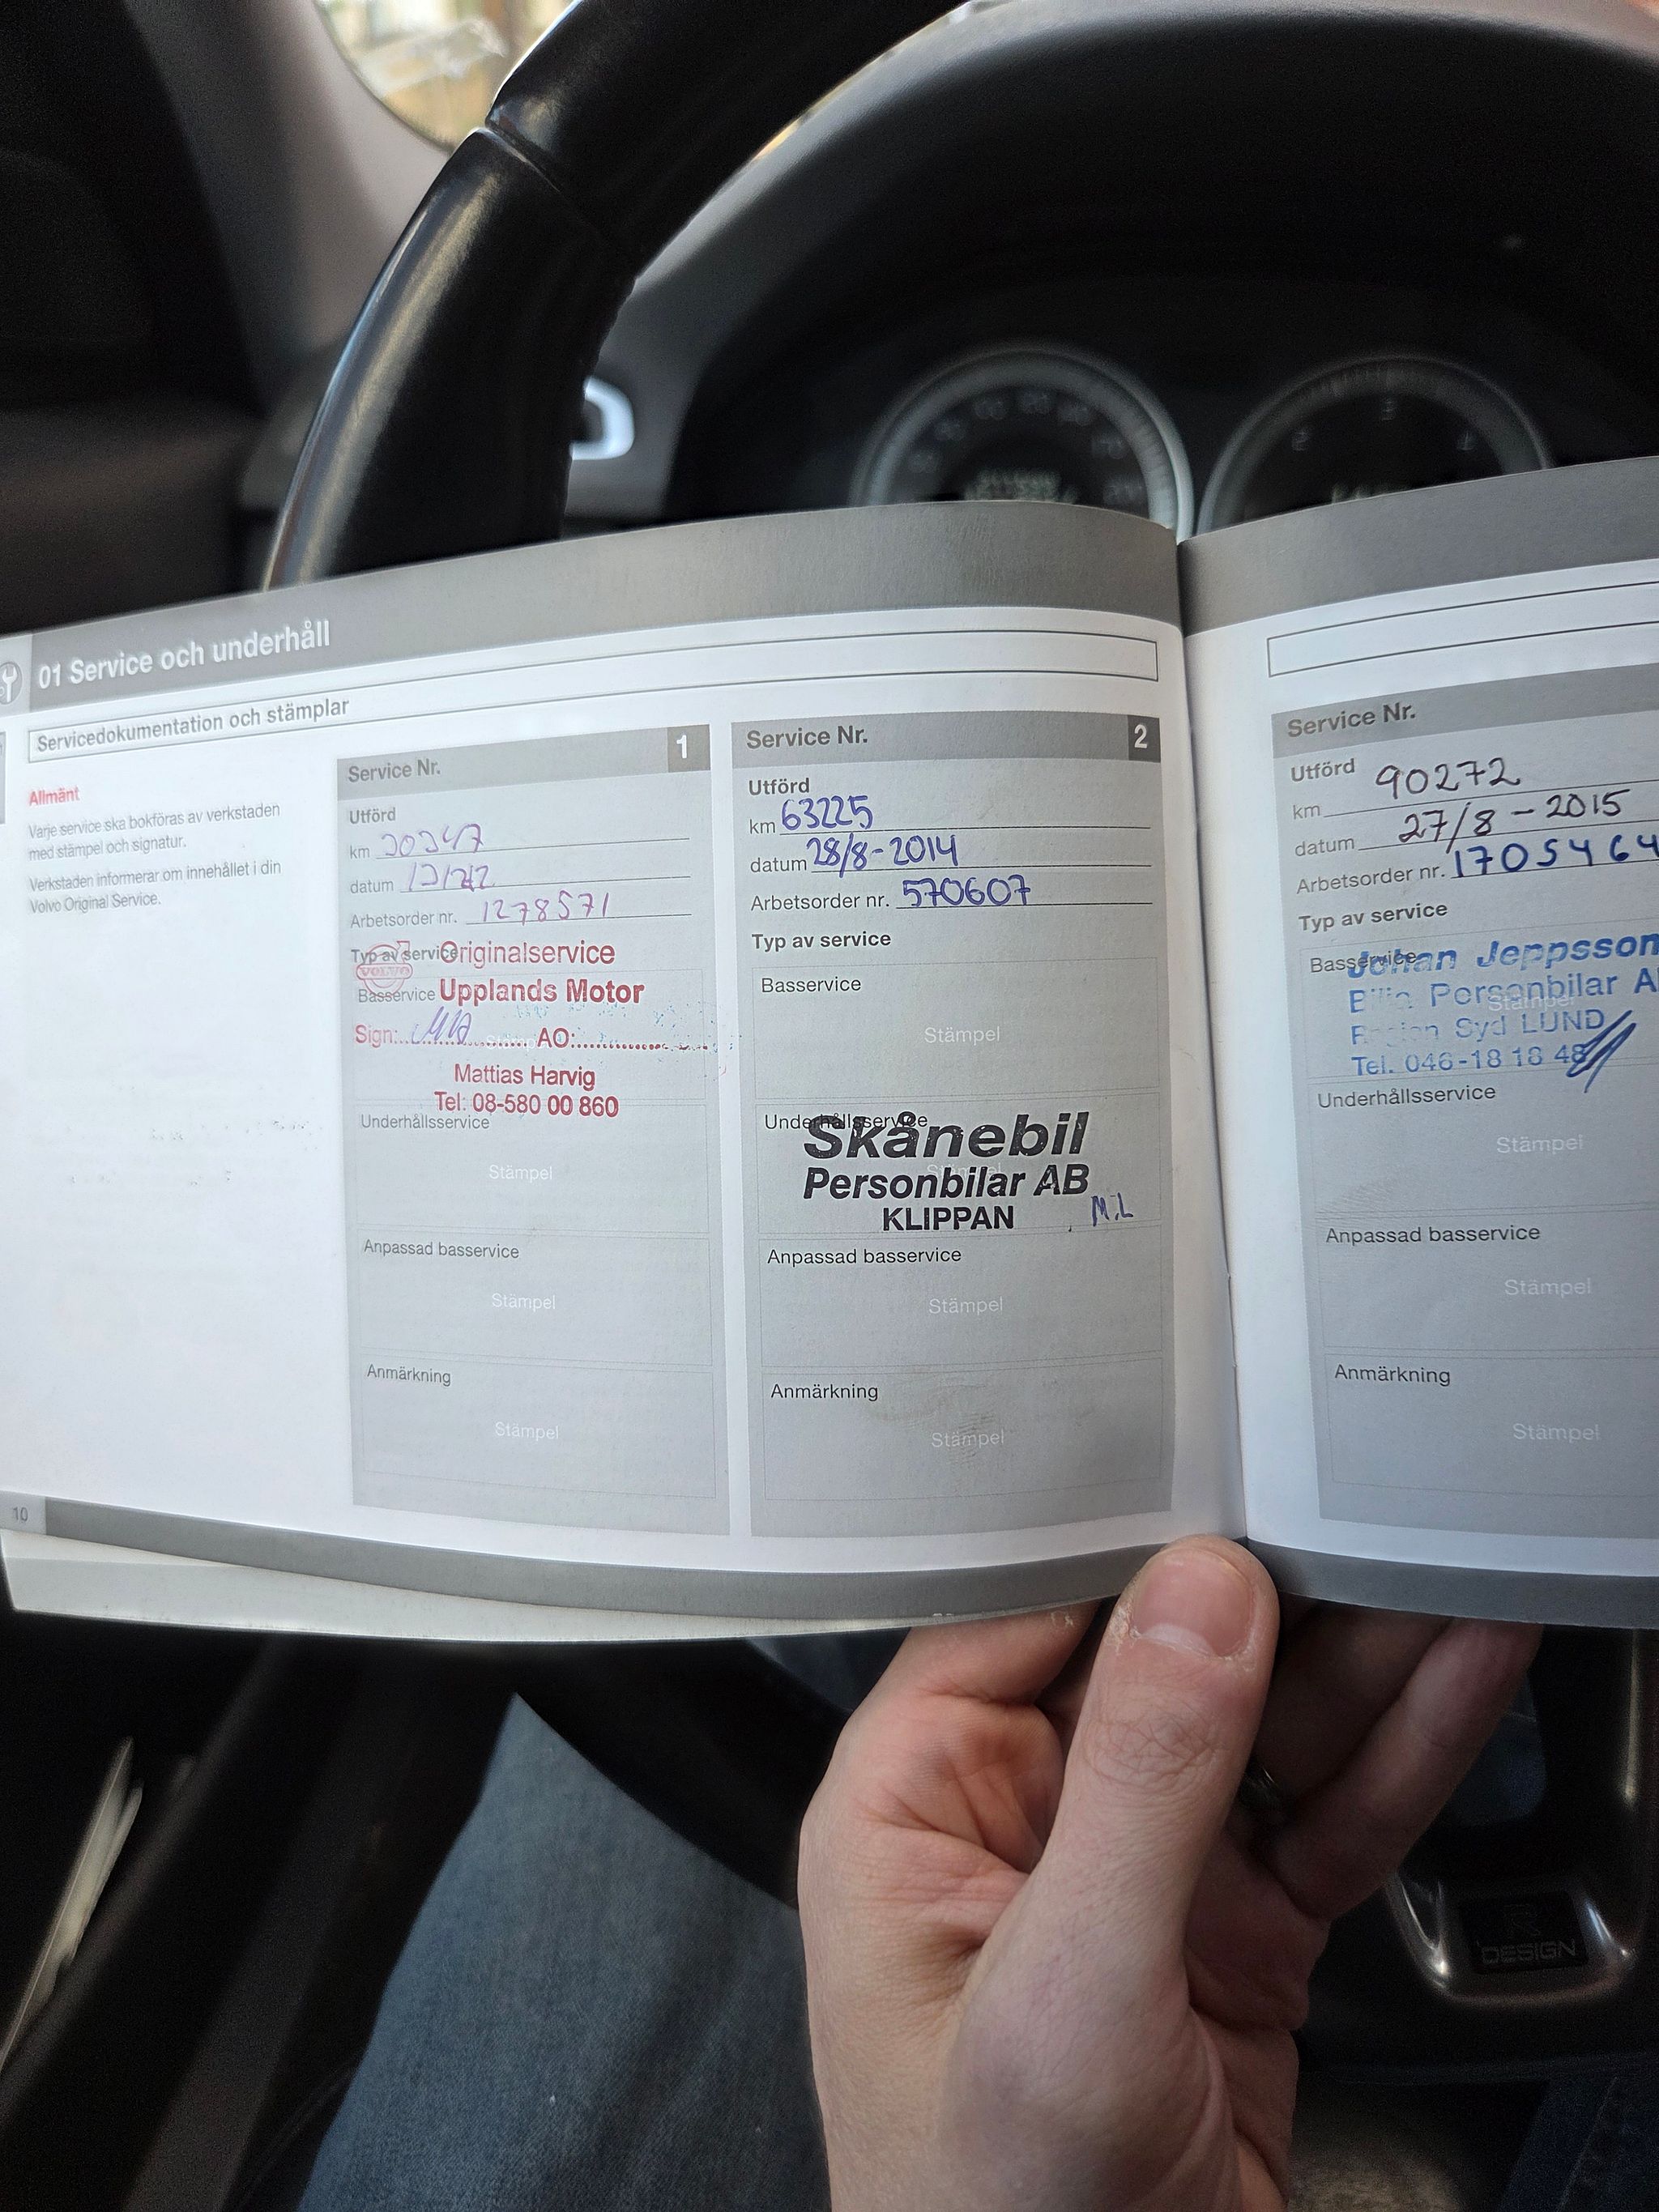 01 Service och underhåll
Servicedokumentation och stämplar
Allmänt
Varje service ska bokföras av verkstaden
med stämpel och signatur.
Verkstaden informerar om innehållet i din
Volvo Original Service.
10
Service Nr. 1
Utförd
km
datum
Arbetsorder nr. 1278571
Typ av service
Originalservice
VOLVO
Basservice
Upplands Motor
Sign: AO:
Stämpel
Mattias Harvig
Tel: 08-580 00 860
Underhållsservice
Stämpel
Anpassad basservice
Stämpel
Anmärkning
Stämpel
Service Nr. 2
Utförd
km 63225
datum 28/8-2014
Arbetsorder nr. 570607
Typ av service
Basservice
Stämpel
Underhållsservice
Skånebil
Personbilar AB
KLIPPAN M.L
Anpassad basservice
Stämpel
Anmärkning
Stämpel
Service Nr.
Utförd
km 90272
datum 27/8-2015
Arbetsorder nr. 1705464
Typ av service
Basservice
Johan Jeppsson
Bilia Personbilar A
Stämpel
Region Syd LUND
Tel. 046-18 18 48
Underhållsservice
Stämpel
Anpassad basservice
Stämpel
Anmärkning
Stämpel
DESIGN